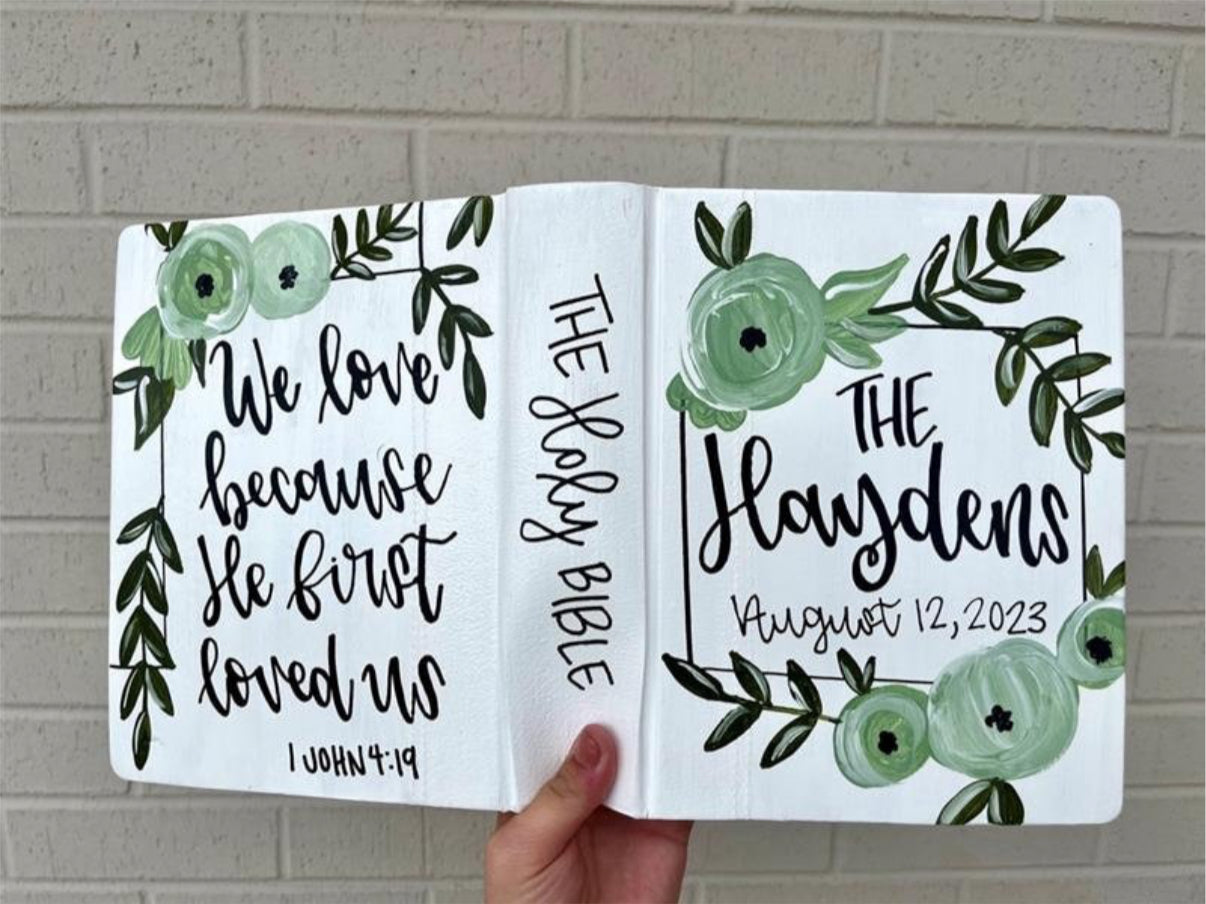 We love
because
He first
loved us
1 JOHN 4:19
THE Holy BIBLE
THE
Haydens
August 12, 2023